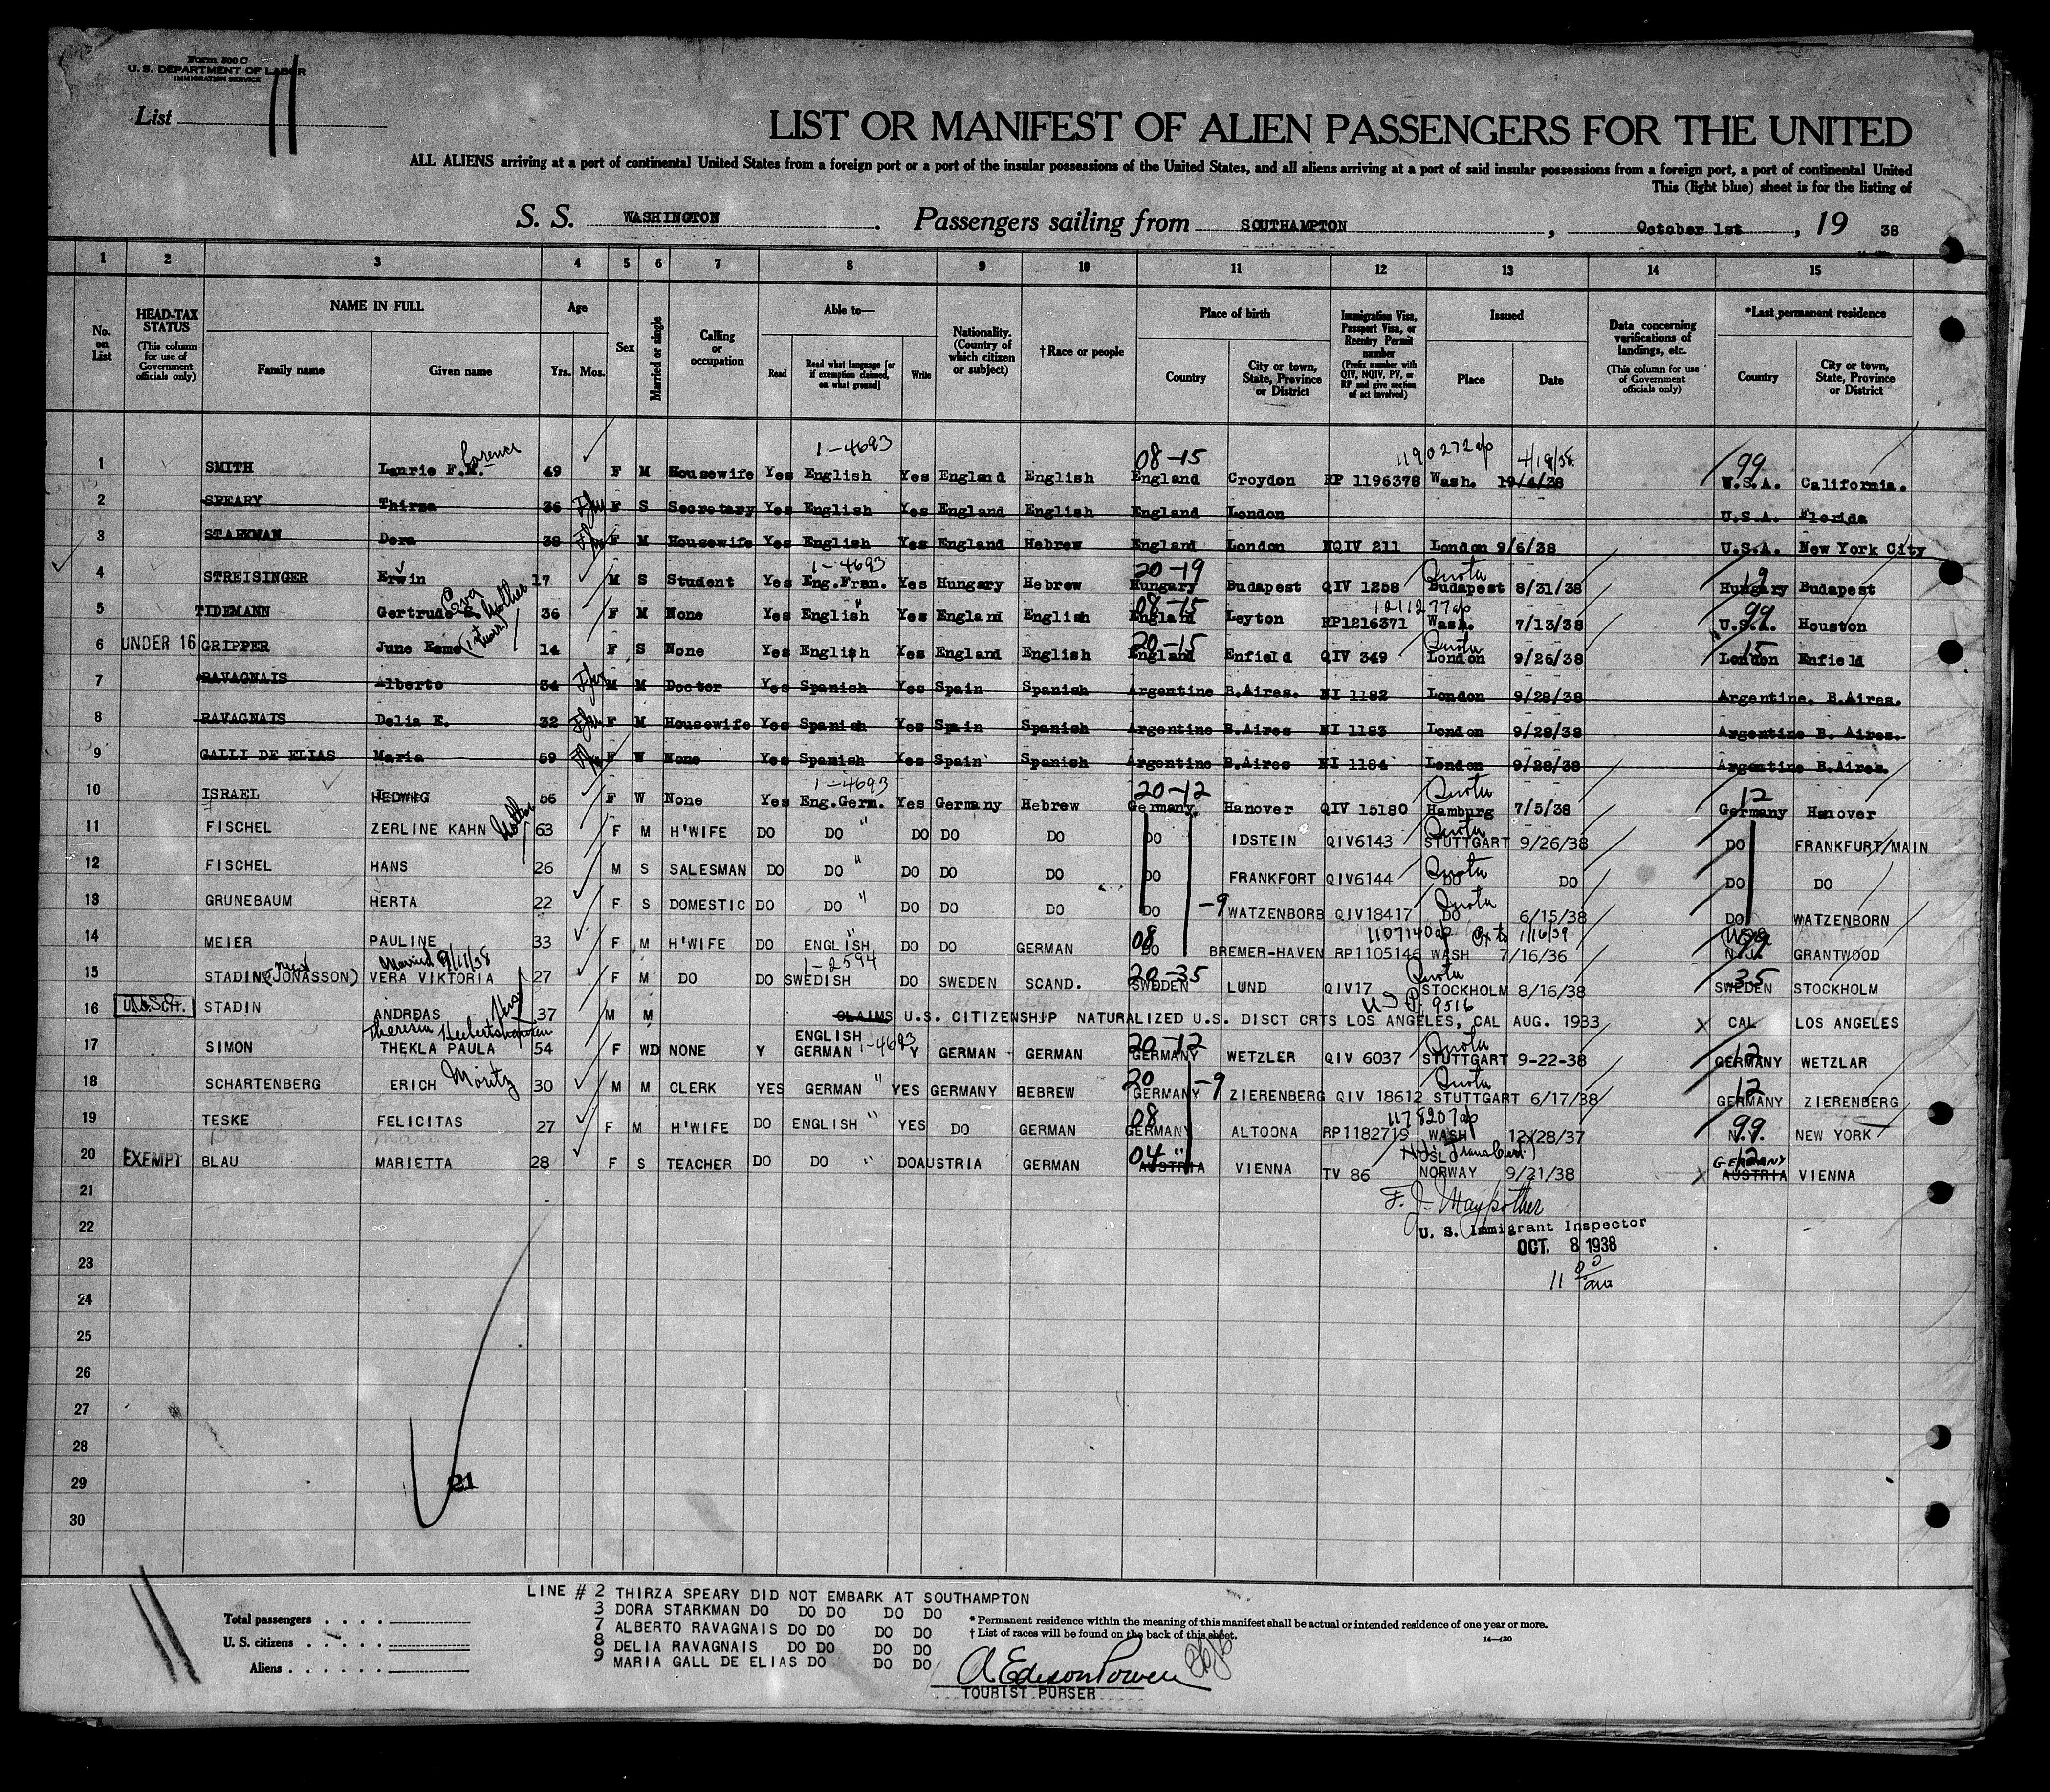 Form 500 C
U. S. DEPARTMENT OF LABOR
IMMIGRATION SERVICE
List 11
LIST OR MANIFEST OF ALIEN PASSENGERS FOR THE UNITED
ALL ALIENS arriving at a port of continental United States from a foreign port or a port of the insular possessions of the United States, and all aliens arriving at a port of said insular possessions from a foreign port, a port of continental United
This (light blue) sheet is for the listing of
S. S. WASHINGTON . Passengers sailing from SOUTHAMPTON , October 1st , 19 38
1 2 3 4 5 6 7 8 9 10 11 12 13 14 15
No. on List
HEAD-TAX STATUS (This column for use of Government officials only)
NAME IN FULL
Family name Given name
Age
Yrs. Mos.
Sex
Married or single
Calling or occupation
Able to—
Read Read what language [or if exemption claimed, on what ground] Write
Nationality. (Country of which citizen or subject)
† Race or people
Place of birth
Country City or town, State, Province or District
Immigration Visa, Passport Visa, or Reentry Permit number (Prefix number with QIV, NQIV, PV, or RP and give section of act involved)
Issued
Place Date
Data concerning verifications of landings, etc. (This column for use of Government officials only)
*Last permanent residence
Country City or town, State, Province or District
Lorence 1-4693 08-15 1190272ap 4/19/38 99
1 SMITH Lanrie F.M. 49 F M Housewife Yes English Yes England English England Croydon RP 1196378 Wash. 19/4/38 U.S.A. California.
2 SPEARY Thirza 36 F S Secretary Yes English Yes England English England London U.S.A. Florida
3 STARKMAN Dora 38 F M Housewife Yes English Yes England Hebrew England London NQIV 211 London 9/6/38 U.S.A. New York City
1-4693 20-19 Quota 19
4 STREISINGER Erwin 17 M S Student Yes Eng.Fran. Yes Hungary Hebrew Hungary Budapest QIV 1258 Budapest 8/31/38 Hungary Budapest
Eva Mother 08-15 1211277ap 99
5 TIDEMANN Gertrude E. 36 F M None Yes English " Yes England English England Leyton RP1216371 Wash. 7/13/38 U.S.A. Houston
20-15 Quota 15
6 UNDER 16 GRIPPER June Esme 14 F S None Yes English Yes England English England Enfield QIV 349 London 9/26/38 London Enfield
7 RAVAGNAIS Alberto 34 M M Doctor Yes Spanish Yes Spain Spanish Argentine B.Aires. NI 1182 London 9/28/38 Argentine. B.Aires.
8 RAVAGNAIS Delia E. 32 F M Housewife Yes Spanish Yes Spain Spanish Argentine B.Aires NI 1183 London 9/28/38 Argentine B. Aires.
9 GALLI DE ELIAS Maria 59 F W None Yes Spanish Yes Spain Spanish Argentine B.Aires NI 1184 London 9/28/38 Argentine B.Aires.
1-4693 20-12 Quota 12
10 ISRAEL HEDWIG 56 F W None Yes Eng.Germ. Yes Germany Hebrew Germany. Hanover QIV 15180 Hamburg 7/5/38 Germany Hanover
Mother Quota
11 FISCHEL ZERLINE KAHN 63 F M H'WIFE DO DO " DO DO DO DO IDSTEIN QIV6143 STUTTGART 9/26/38 DO FRANKFURT/MAIN
Quota
12 FISCHEL HANS 26 M S SALESMAN DO DO " DO DO DO DO FRANKFORT QIV6144 DO DO DO DO
Quota
13 GRUNEBAUM HERTA 22 F S DOMESTIC DO DO " DO DO DO DO -9 WATZENBORB QIV18417 DO 6/15/38 DO WATZENBORN
08 1107140ap Ex to 1/16/39 99
14 MEIER PAULINE 33 F M H'WIFE DO ENGLISH " DO DO GERMAN DO BREMER-HAVEN RP1105146 WASH 7/16/36 N.J. GRANTWOOD
Married 9/11/38 1-2594 20-35 Quota 35
15 STADIN (nee JONASSON) VERA VIKTORIA 27 F M DO DO SWEDISH DO SWEDEN SCAND. SWEDEN LUND QIV17 STOCKHOLM 8/16/38 SWEDEN STOCKHOLM
U S P. 9516
16 U.S.CIT. STADIN ANDREAS 37 M M CLAIMS U.S. CITIZENSHIP NATURALIZED U.S. DISCT CRTS LOS ANGELES, CAL AUG. 1933 X CAL LOS ANGELES
Theresia ENGLISH 1-4693 20-12 Quota 12
17 SIMON THEKLA PAULA 54 F WD NONE Y GERMAN Y GERMAN GERMAN GERMANY WETZLER QIV 6037 STUTTGART 9-22-38 GERMANY WETZLAR
Moritz 20 -9 Quota 12
18 SCHARTENBERG ERICH 30 M M CLERK YES GERMAN " YES GERMANY BEBREW GERMANY ZIERENBERG QIV 18612 STUTTGART 6/17/38 GERMANY ZIERENBERG
08 1178207ap 99
19 TESKE FELICITAS 27 F M H'WIFE DO ENGLISH " YES DO GERMAN GERMANY ALTOONA RP1182719 WASH 12/28/37 N.Y. NEW YORK
04 " OSLO GERMANY 12
20 EXEMPT BLAU MARIETTA 28 F S TEACHER DO DO " DO AUSTRIA GERMAN AUSTRIA VIENNA TV 86 NORWAY 9/21/38 X AUSTRIA VIENNA
21
F. J. Maypother
22
U. S. Immigrant Inspector
OCT. 8 1938
23
11 00 am
24
25
26
27
28
29 21
30
LINE # 2 THIRZA SPEARY DID NOT EMBARK AT SOUTHAMPTON
3 DORA STARKMAN DO DO DO DO DO
7 ALBERTO RAVAGNAIS DO DO DO DO
8 DELIA RAVAGNAIS DO DO DO DO
9 MARIA GALL DE ELIAS DO DO DO
Total passengers . . . .
U. S. citizens . . . . .
Aliens . . . . . . .
* Permanent residence within the meaning of this manifest shall be actual or intended residence of one year or more.
† List of races will be found on the back of this sheet.
14—430
A Edison Power
TOURIST PURSER